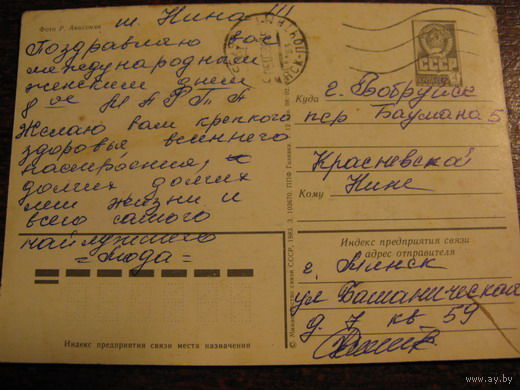 Фото Р. Акопяна
т. Нина!!!
Поздравляю вас
международным
женским днем
8ое МАРТА
Желаю вам крепкого
здоровья весеннего
настроения,
долгих долгих
лет жизни и
всего самого
найлучшего
= Люда =
Индекс предприятия связи места назначения
© Министерство связи СССР, 1983. З. 103670. ППФ Гознака.
СССР
Куда
г. Бобруйск
пер Баумана 5
Красневской
Кому
Нине
Индекс предприятия связи
и адрес отправителя
г. Минск
ул Ботаническая
д. 7 кв 59
www.ay.by